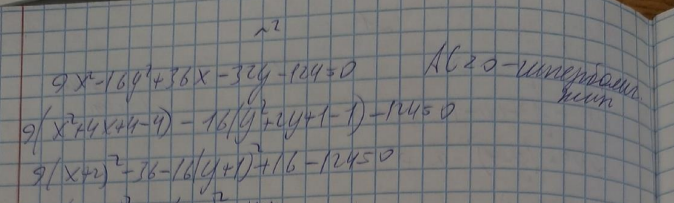 №2
9x²-16y²+36x-32y-124=0 AC<0-гиперболич.
тип
9(x²+4x+4-4)-16(y²+2y+1-1)-124=0
9(x+2)²-36-16(y+1)²+16-124=0